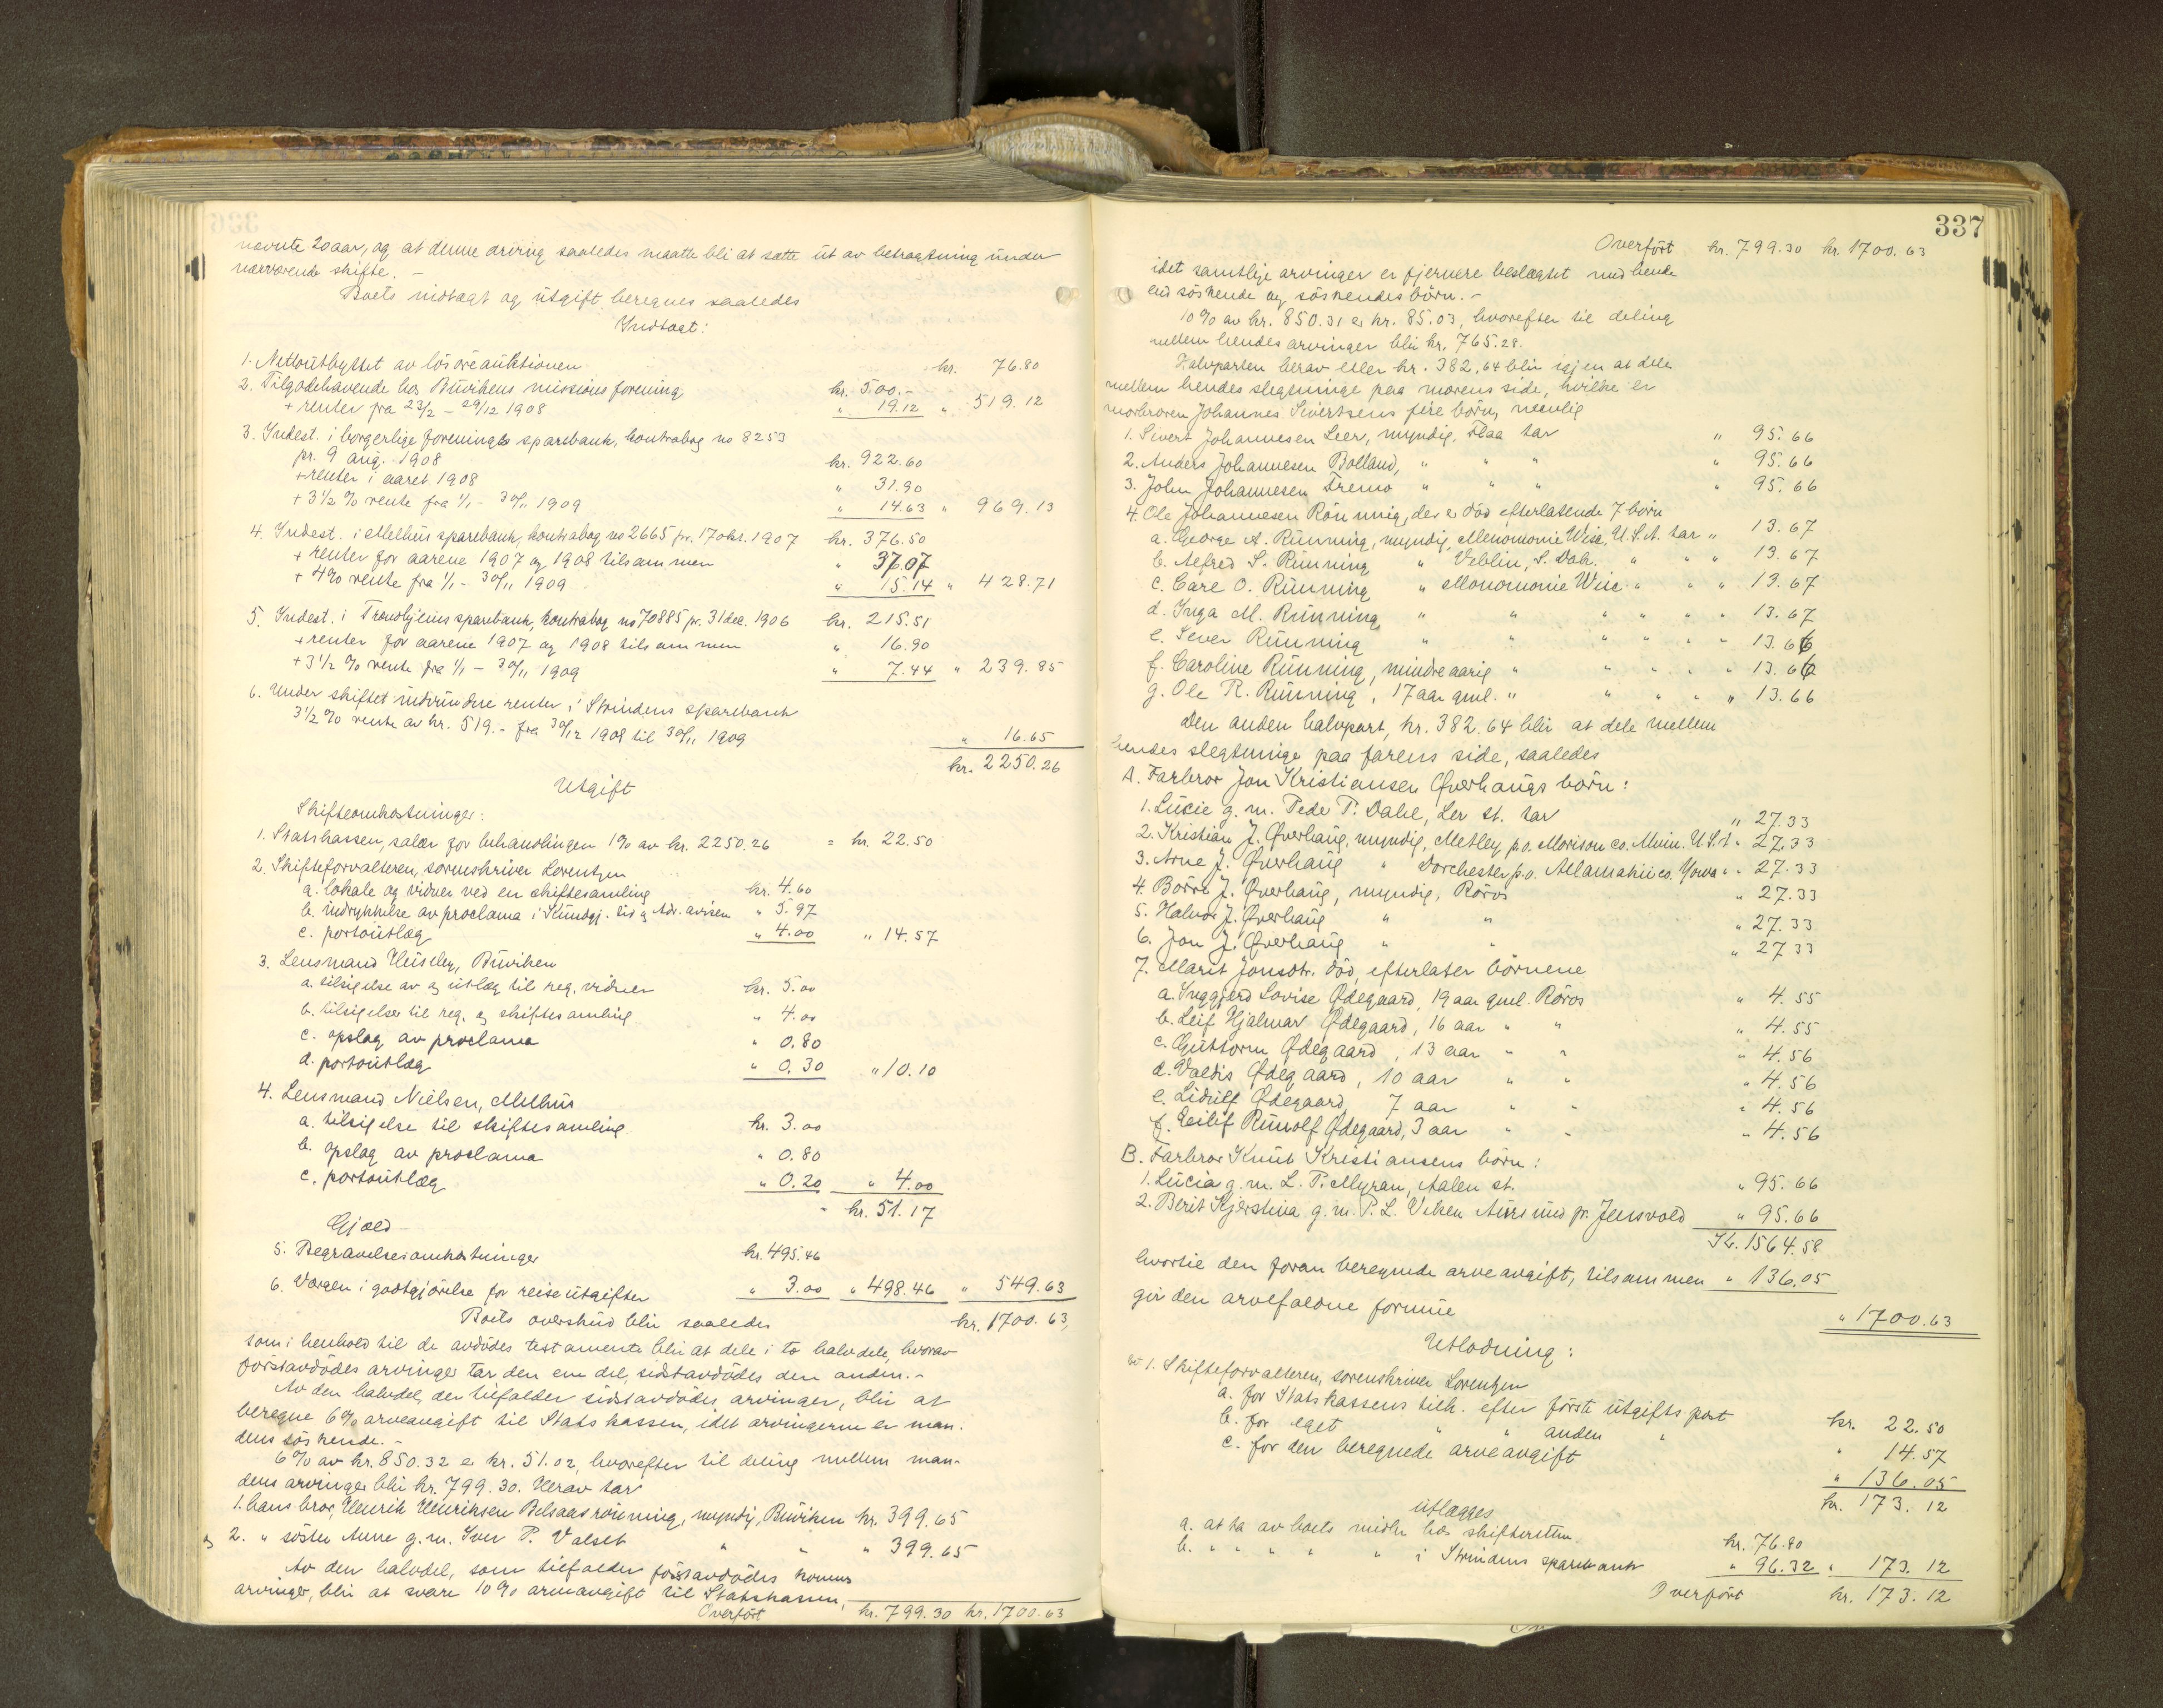 nævnte 20 aar, og at denne arving saaledes maatte bli at sætte ut av betragtning under
nærværende skifte. –
Boets indtægt og utgift beregnes saaledes
Indtægt:
1. Nettoutbyttet av løsøreauktionen kr. 76.80
2. Tilgodehavende hos Buvikens missionsforening kr. 500.–
+ renter fra 23/2 – 29/12 1908 " 19.12 " 519.12
3. Indest. i borgerlige forenings sparebank, kontrabog no 8253
pr. 9 aug. 1908 kr. 922.60
+ renter i aaret 1908 " 31.90
+ 3½ % rente fra 1/1 – 30/11 1909 " 14.63 " 969.13
4. Indest. i Melhus sparebank, kontrabog no 2665 pr. 17 okt. 1907 kr. 376.50
+ renter for aarene 1907 og 1908 tilsammen " 37.07
+ 4% rente fra 1/1 – 30/11 1909 " 15.14 " 428.71
5. Indest. i Trondhjems sparebank, kontrabog no 70885 pr. 31 dec. 1906 kr. 215.51
+ renter for aarene 1907 og 1908 tilsammen " 16.90
+ 3½ % rente fra 1/1 – 30/11 1909 " 7.44 " 239.85
6. Under skiftet indvundne renter i Strindens sparebank
3½ % rente av kr. 519.– fra 30/12 1908 til 30/11 1909 " 16.65
kr. 2250.26
Utgift
Skifteomkostninger:
1. Statskassen, salær for behandlingen 1% av kr. 2250.26 = kr. 22.50
2. Skifteforvalteren, sorenskriver Lorentzen
a. lokale og vidner ved en skiftesamling kr. 4.60
b. indrykkelse av proclama i Kundgj. tid. og Adr. avisen " 5.97
c. portoutlæg " 4.00 " 14.57
3. Lensmand Huseby, Buviken
a. tilsigelse av og utlæg til reg. vidner kr. 5.00
b. tilsigelser til reg. og skiftesamling " 4.00
c. opslag av proclama " 0.80
d. portoutlæg " 0.30 " 10.10
4. Lensmand Nielsen, Melhus
a. tilsigelse til skiftesamling kr. 3.00
b. opslag av proclama " 0.80
c. portoutlæg " 0.20 " 4.00
= kr. 51.17
Gjæld
5. Begravelsesomkostninger kr. 495.46
6. Værgen i godtgjørelse for reiseutgifter " 3.00 " 498.46 " 549.63
Boets overskud blir saaledes kr. 1700.63,
som i henhold til de avdødes testamente blir at dele i to halvdele, hvorav
førstavdødes arvinger tar den ene del, sidstavdødes den anden. –
Av den halvdel, der tilfalder sidstavdødes arvinger, blir at
beregne 6% arveavgift til Statskassen, idet arvingerne er man-
dens søskende. –
6% av kr. 850.32 er kr. 51.02, hvorefter til deling mellem man-
dens arvinger blir kr. 799.30. Herav tar
1. hans bror, Henrik Henriksen Belsaasrønning, myndig, Buviken kr. 399.65
og 2. " søster Anne g. m. Iver P. Valset " " " 399.65
Av den halvdel, som tilfalder førstavdødes kones
arvinger, blir at svare 10% arveavgift til Statskassen,
Overført kr. 799.30 kr. 1700.63
337
Overført kr. 799.30 kr. 1700.63
idet samtlige arvinger er fjernere beslægtet med hende
end søskende og søskendes børn. –
10% av kr. 850.31 er kr. 85.03, hvorefter til deling
mellem hendes arvinger blir kr. 765.28.
Halvparten herav eller kr. 382.64 blir igjen at dele
mellem hendes slegtninge paa morens side, hvilke er
morbroren Johannes Sivertsens fire børn, nemlig
1. Sivert Johannesen Leer, myndig, Flaa tar " 95.66
2. Anders Johannesen Bolland, " " " " 95.66
3. John Johannesen Fremo " " " " 95.66
4. Ole Johannesen Rønning, der er død efterlatende 7 børn
a. George A. Running, myndig, Menomonie Wisc. U.S.A. tar " 13.67
b. Alfred S. Running " Veblin, S. Dak. " " " 13.67
c. Carl O. Running " Monomonie Wisc. " " " 13.67
d. Inga M. Running " " " " " " 13.67
e. Sever Running " " " " " " 13.66
f. Caroline Running, mindreaarig " " " " " 13.66
g. Ole R. Running, 17 aar gml. " " " " " 13.66
Den anden halvpart, kr. 382.64 blir at dele mellem
hendes slegtninge paa farens side, saaledes
A. Farbror Jon Kristiansen Øverhaugs børn:
1. Lucie g. m. Peder P. Dahl, Ler st. tar " 27.33
2. Kristian J. Øverhaug, myndig, Metley p.o. Morison co. Minn. U.S.A. " 27.33
3. Arne J. Øverhaug " Dorchester p.o. Allamakii co. Yowa " " 27.33
4. Børre J. Øverhaug, myndig, Røros " 27.33
5. Halvor J. Øverhaug " " " 27.33
6. Jon J. Øverhaug " " " 27.33
7. Marit Jonsdtr. død, efterlater børnene
a. Inggjerd Lovise Ødegaard, 19 aar gml. Røros " 4.55
b. Leif Hjalmar Ødegaard, 16 aar " " " 4.55
c. Guttorm Ødegaard, 13 aar " " " 4.56
d. Valdis Ødegaard, 10 aar " " " 4.56
e. Lidulf Ødegaard, 7 aar " " " 4.56
f. Eilif Runolf Ødegaard, 3 aar " " " 4.56
B. Farbror Knut Kristiansens børn:
1. Lucia g. m. L. P. Myran, Aalen st. " 95.66
2. Berit Kjerstina g. m. P. L. Viken Aursund pr. Jensvold " 95.66
Kr. 1564.58
hvortil den foran beregnede arveavgift, tilsammen " 136.05
gir den arvefaldne formue " 1700.63
Utlodning:
1. Skifteforvalteren, sorenskriver Lorentzen
a. for Statskassens tilh. efter første utgiftspost kr. 22.50
b. for eget " " anden " " 14.57
c. for den beregnede arveavgift " 136.05
kr. 173.12
utlægges
a. at ta av boets midler hos skifteretten kr. 76.80
b. " " " " " i Strindens sparebank " 96.32 " 173.12
Overført kr. 173.12